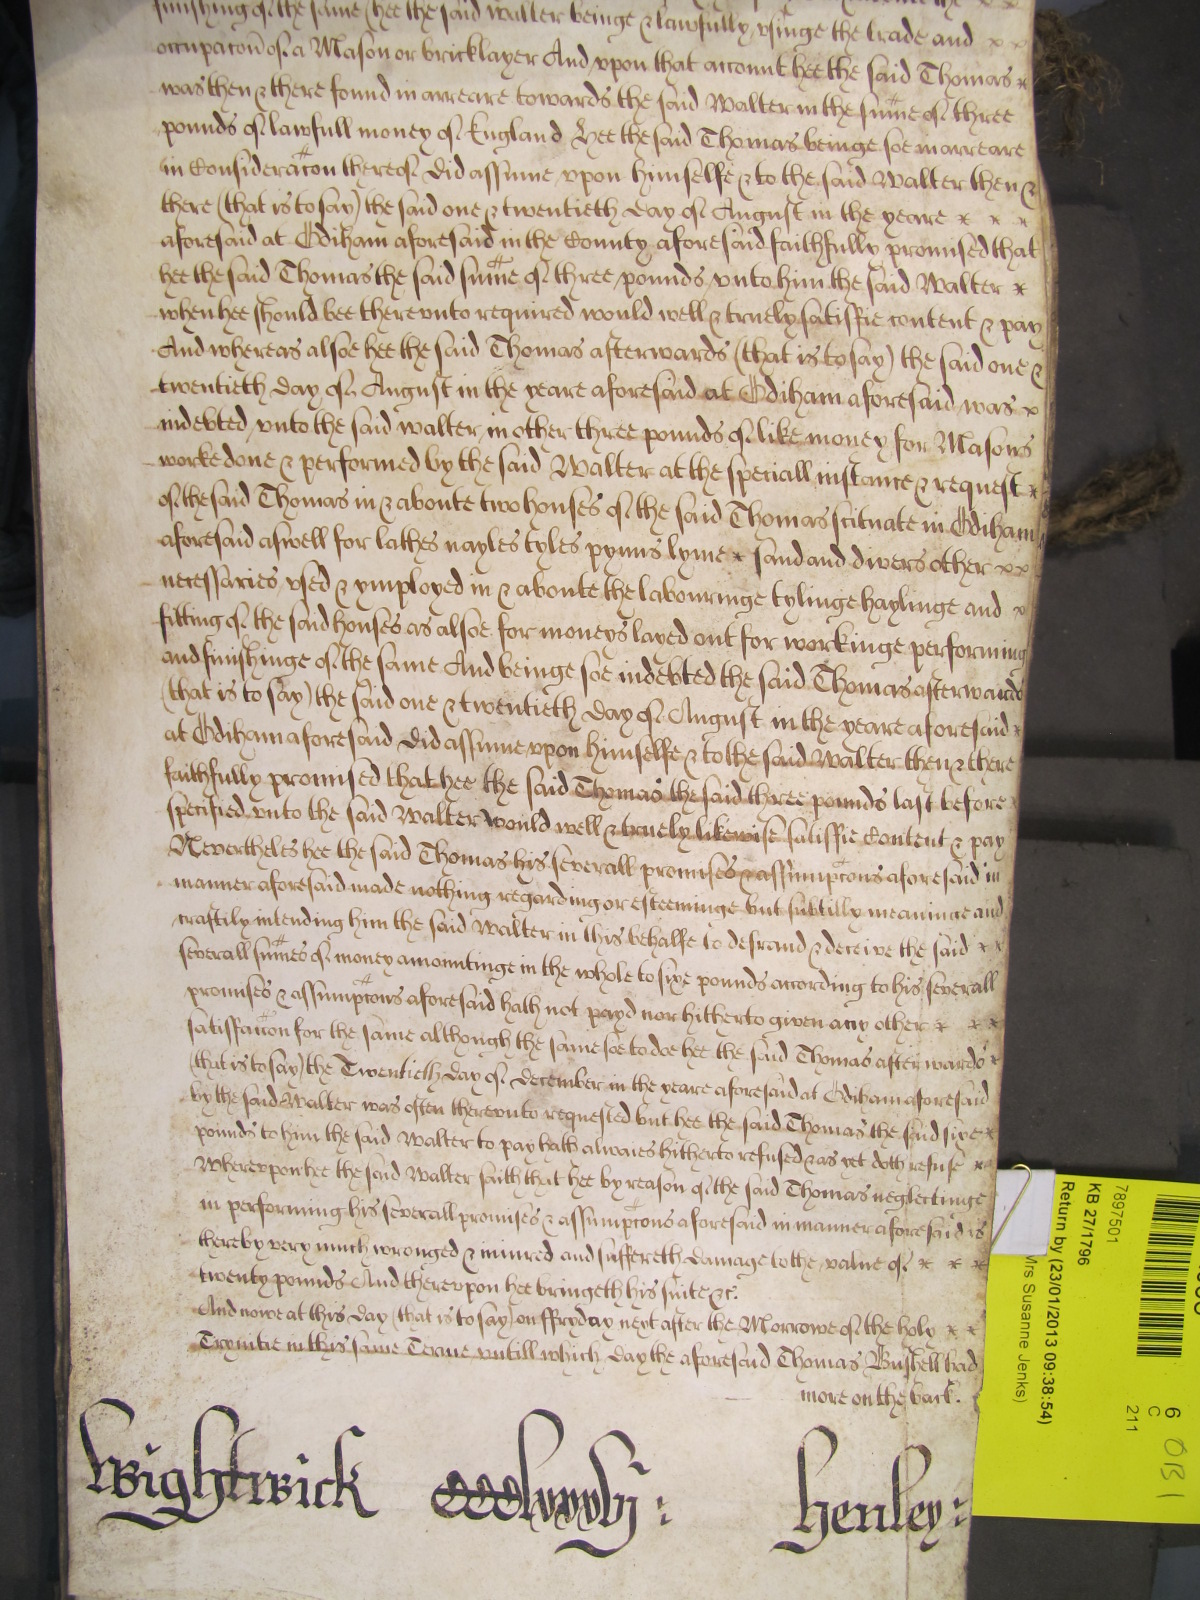 finishing of the same (hee the said Walter beinge & lawfully vsinge the trade and x x
occupacon of a Mason or bricklayer And vpon that account hee the said Thomas x
was then & there found in arreare towards the said Walter in the sume of three
pounds of lawfull money of England Hee the said Thomas beinge soe in arreare
in Consideracon thereof did assume vpon himselfe & to the said Walter then &
there (that is to say) the said one & twentieth day of August in the yeare x x x
aforesaid at Odiham aforesaid in the County aforesaid faithfully promised that
hee the said Thomas the said sume of three pounds vnto him the said Walter x
when hee should bee therevnto required would well & truely satisfie content & pay
And whereas alsoe hee the said Thomas afterwards (that is to say) the said one &
twentieth day of August in the yeare aforesaid at Odiham aforesaid was x
indebted vnto the said Walter in other three pounds of like money for Masons
worke done & performed by the said Walter at the speciall instance & request x
of the said Thomas in & aboute two houses of the said Thomas scituate in Odiham
aforesaid aswell for lathes nayles tyles pynns lyme x sand and divers other x x
necessaries vsed & ymployed in & aboute the labouringe tylinge haylinge and x
fitting of the said houses as alsoe for moneys layed out for workinge performing
and finishinge of the same And beinge soe indebted the said Thomas afterwards
(that is to say) the said one & twentieth day of August in the yeare aforesaid x
at Odiham aforesaid did assume vpon himselfe & to the said Walter then & there
faithfully promised that hee the said Thomas the said three pounds last before
specified vnto the said Walter would well & truely likewise satisfie Content & pay
Nevertheles hee the said Thomas his severall promises & assumptcons aforesaid in
manner aforesaid made nothing regarding or esteeminge but subtilly meaninge and
craftily intending him the said Walter in this behalfe to defraud & deceive the said x x
severall sumes of money amountinge in the whole to sixe pounds according to his severall
promises & assumptcons aforesaid hath not payd nor hitherto given any other x x x
satisfaccon for the same although the same soe to doe hee the said Thomas afterwards x
(that is to say) the Twentieth day of December in the yeare aforesaid at Odiham aforesaid
by the said Walter was often therevnto requested but hee the said Thomas the said sixe x
pounds to him the said Walter to pay hath alwaies hitherto refused & as yet doth refuse x
Wherevpon hee the said Walter saith that hee by reason of the said Thomas neglectinge
in performing his severall promises & assumptcons aforesaid in manner aforesaid is
thereby very much wronged & iniured and suffereth damage to the value of x x x
twenty pounds And therevpon hee bringeth his suite &c.
And nowe at this day (that is to say) on ffryday next after the Morrowe of the holy x x
Trynitie in this same Terme vntill which day the aforesaid Thomas Bushell had
more on the back.
Wightwick
henley:
7897501
KB 27/1796
Return by (23/01/2013 09:38:54)
Mrs Susanne Jenks)
6
C
211